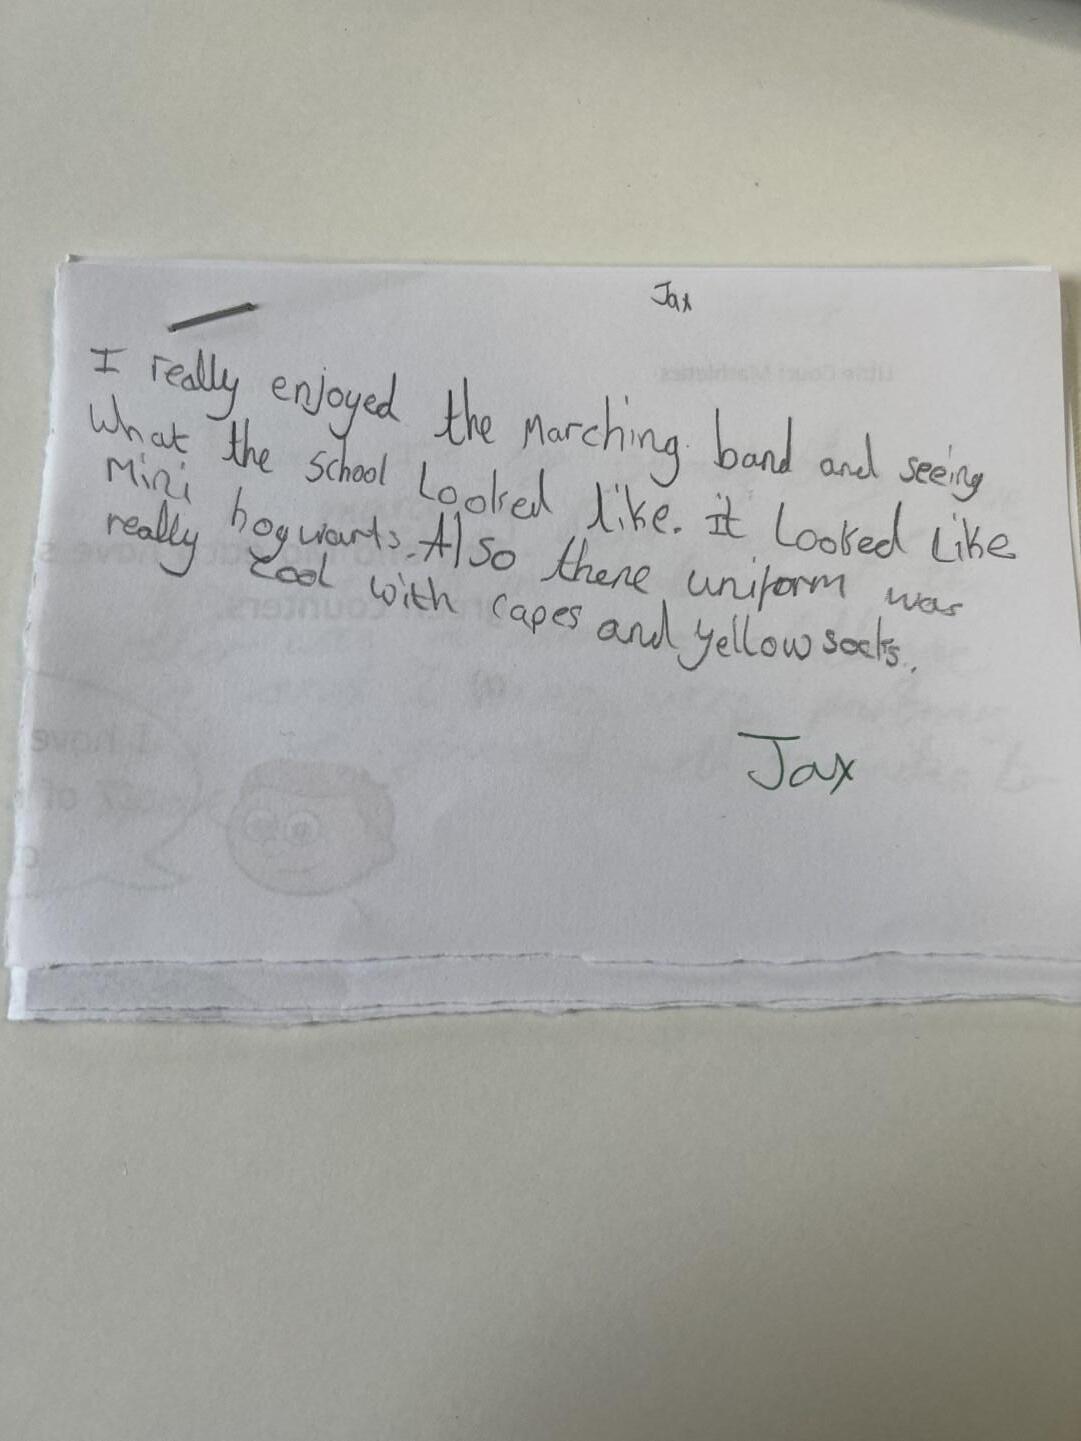 Jax
I really enjoyed the Marching band and seeing
What the school Looked like. it Looked Like
Mini hogwarts. Also there uniform was
really cool with capes and yellow socks.
Jax